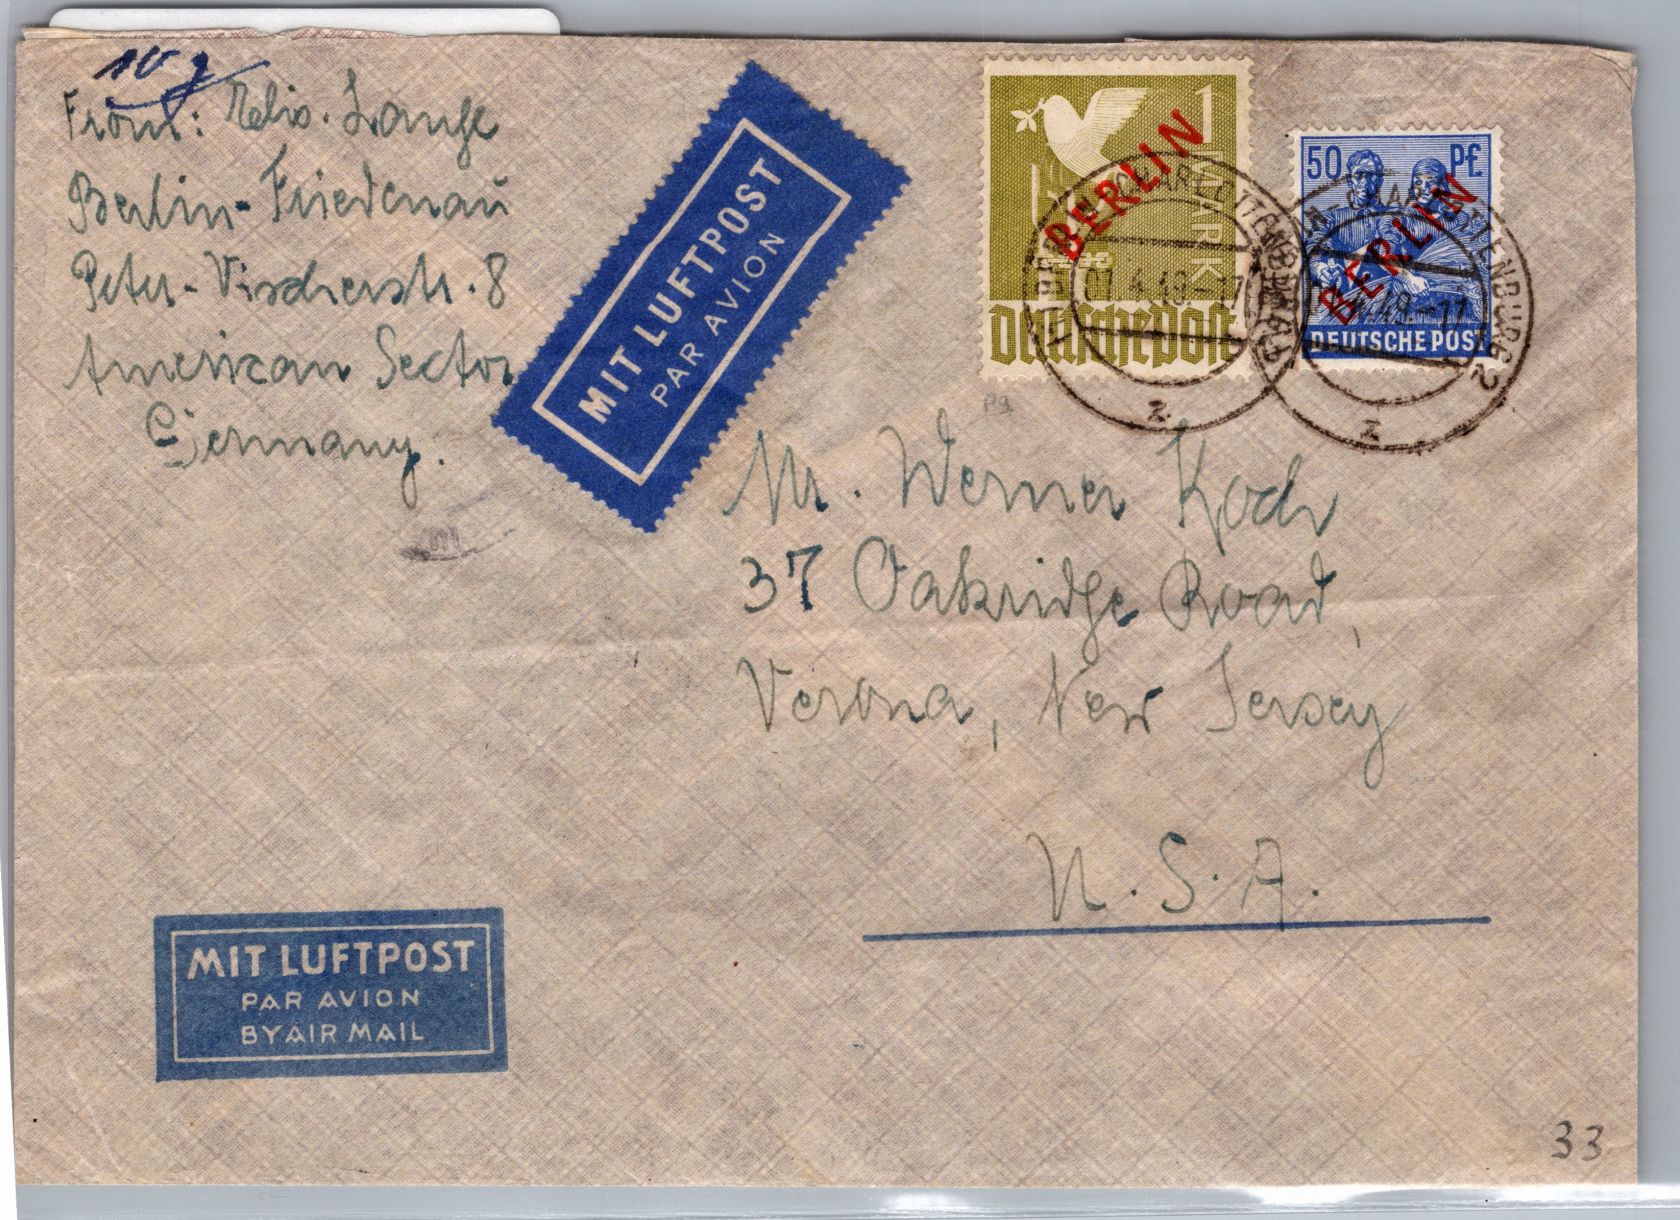 10 g
From: Lange
Berlin-Friedenau
Peter-Vischerstr. 8
American Sector
Germany.
MIT LUFTPOST
PAR AVION
1 MARK
BERLIN
Deutsche Post
50 Pf.
BERLIN
DEUTSCHE POST
BERLIN-CHARLOTTENBURG 2
01.4.49.-17
z
BERLIN-CHARLOTTENBURG 2
z
Mr. Werner Koch
37 Oakridge Road,
Verona, New Jersey
U.S.A.
MIT LUFTPOST
PAR AVION
BY AIR MAIL
33